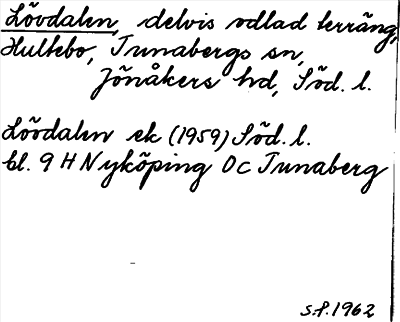 Lövdalen, delvis odlad terräng,
Hultebo, Tunabergs sn,
Jönåkers hd, Söd. l.
Lövdalen ek (1959) Söd. l.
bl. 9 H Nyköping Dc Tunaberg
S.P. 1962